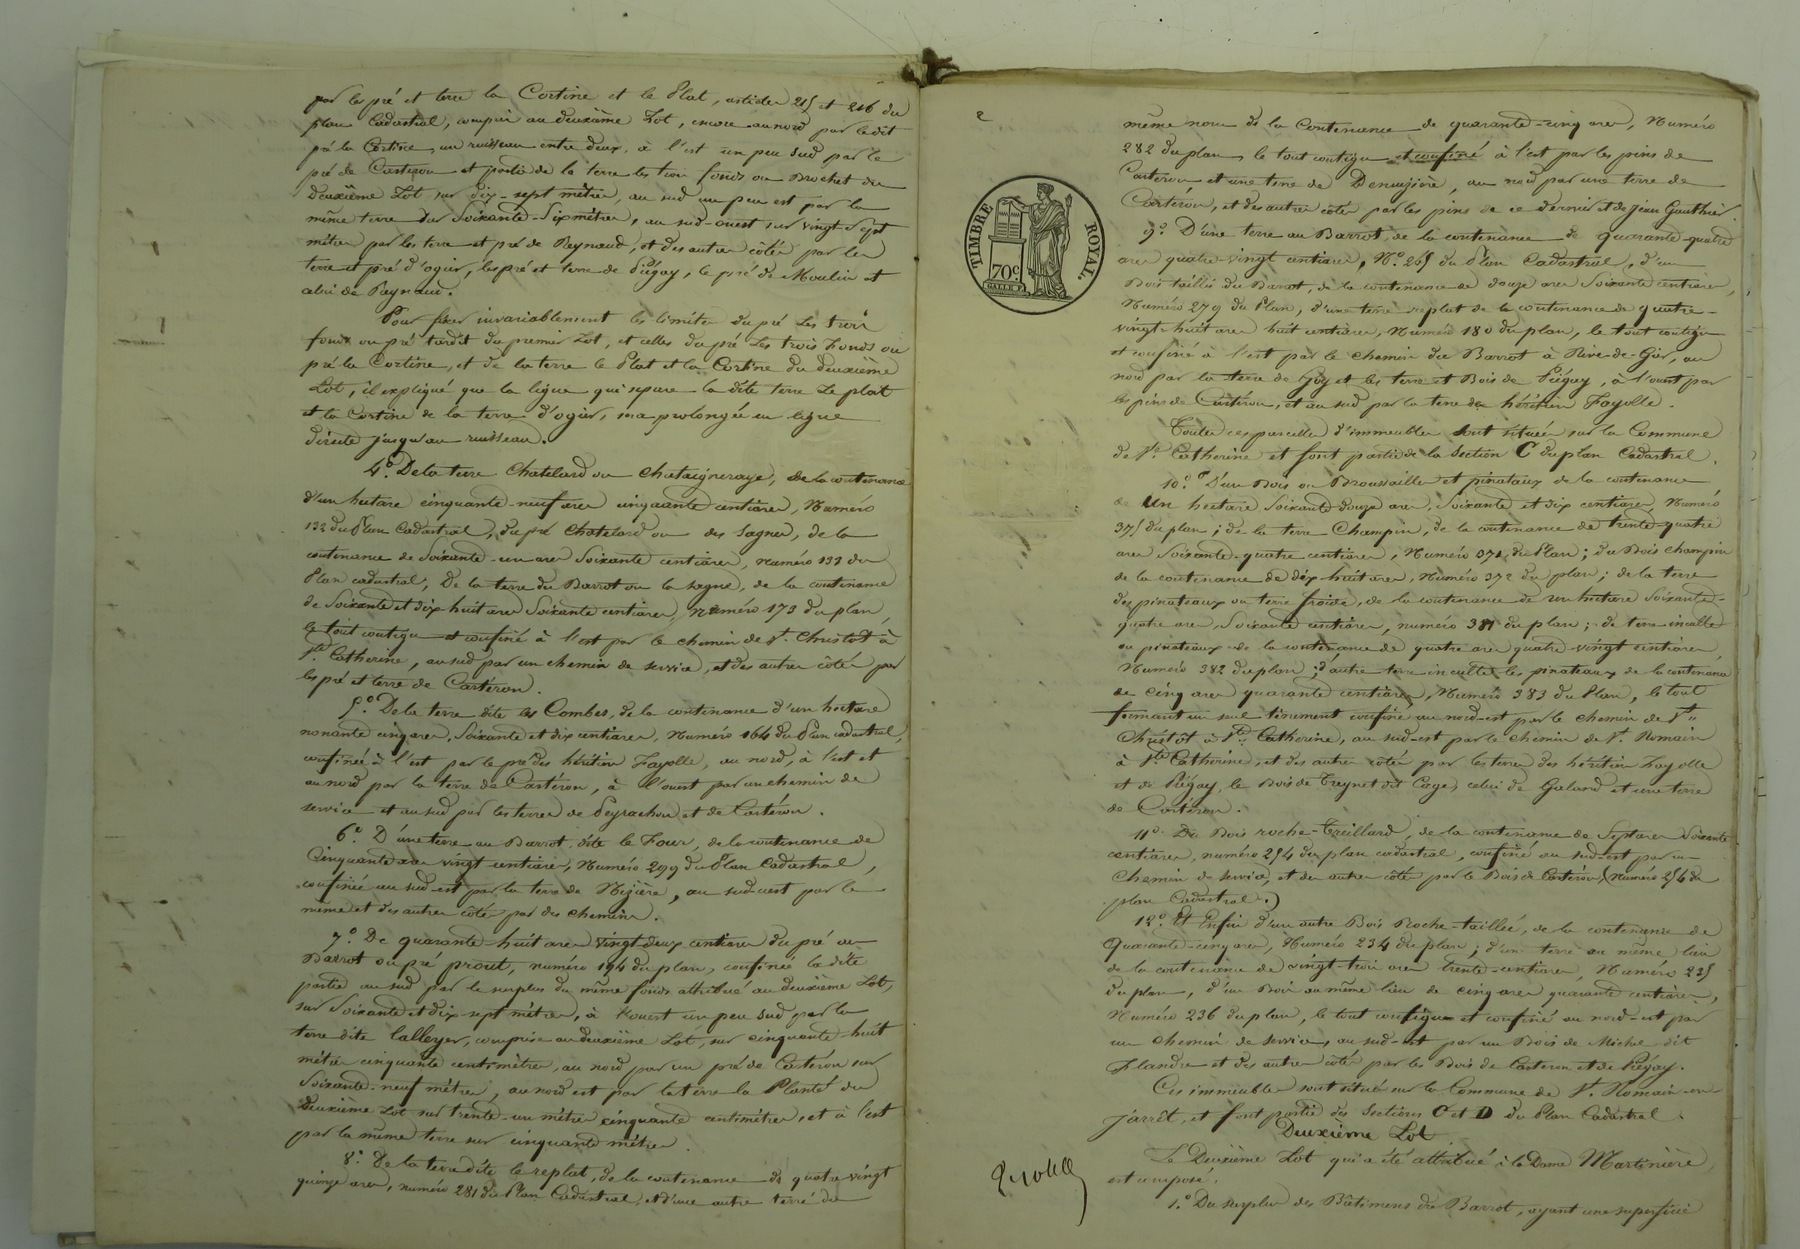 par les pré et terre la Cortine et le Plat, articles 215 et 216 du
plan Cadastral, compris au deuxième Lot, encore au nord par le dit
pré la Cortine, un ruisseau entre deux, à l'est un peu sud par le
pré de Carteron et partie de la terre les trois fonds ou Brochet du
Deuxième Lot, sur dix-sept mètres, au sud un peu est par la
même terre sur Soixante-Six mètres, au sud-ouest sur vingt-sept
mètres par les terre et pré de Reynaud, et des autres côtés par les
terre et pré d'ogier, les pré et terre de Piégay, le pré de Moulin et
celui de Reynaud.
Pour fixer invariablement les limites du pré Les trois
fonds ou pré tardit du premier Lot, et celles du pré Les trois Fonds ou
pré la Cortine, et de la terre le Plat et la Cortine du deuxième
Lot, il expliqué que la ligne qui sépare la dite terre Le plat
et la Cortine de la terre d'ogier, sera prolongée en ligne
directe jusqu'au ruisseau.
4.° De la terre Chatelard ou Chataigneraye, de la contenance
d'un hectare cinquante-neuf ares cinquante centiares, Numéro
132 du Plan Cadastral, du pré Chatelard ou des Sagnes, de la
contenance de Soixante-un ares Soixante centiares, numéro 133 du
Plan cadastral, De la terre du Barrot ou la sagne, de la contenance
de Soixante et dix huit ares Soixante centiares, numéro 173 du plan,
le tout contigu et confiné à l'est par le chemin de St. Christôt à
Ste. Catherine, au sud par un chemin de service, et des autres côtés par
les pré et terre de Cartéron.
5.° De la terre dite les Combes, de la contenance d'un hectare
nonante cinq ares, Soixante et dix centiares, Numéro 164 du Plan cadastral,
confinée à l'est par le pré des héritiers Fayolle, au nord, à l'est et
au nord par la terre de Cartéron, à l'ouest par un chemin de
service et au sud par les terres de Peyrachon et de Cartéron.
6.° D'une terre au Barrot, dite le Four, de la contenance de
Cinquante ares vingt centiares, Numéro 299 du Plan Cadastral,
confinée au sud-est par la terre de Mizière, au sud-ouest par le
même et des autres côtés par des chemins.
7.° De quarante-huit ares vingt-deux centiares du pré au
Barrot ou pré prout, numéro 194 du plan, confinée la dite
partie au sud par le surplus du même fonds attribué au deuxième Lot,
sur Soixante et dix-sept mètres, à l'ouest un peu sud par la
terre dite lalleyer, comprise au deuxième Lot, sur cinquante-huit
mètres cinquante centimètres, au nord par un pré de Cartéron sur
Soixante-neuf mètres, au nord est par la terre la Planté du
Deuxième Lot sur trente-un mètres cinquante centimètres, et à l'est
par la même terre sur cinquante mètres.
8.° De la terre dite le replat, de la contenance de quatre vingt
quinze ares, numéro 281 du Plan Cadastral, et d'une autre terre du
2
TIMBRE ROYAL.
70c
même nom de la Contenance de quarante-cinq ares, Numéro
282 du plan, le tout contigu et confiné à l'est par les pins de
Carteron et une terre de Denuzière, au nord par une terre de
Cartéron, et des autres côtés par les pins de ce dernier et de jean Gauthier.
9.° D'une terre au Barrot, de la contenance de quarante-quatre
ares quatre vingt centiares, N.° 265 du Plan Cadastral, d'un
Bois taillis du Barrot, de la contenance de douze ares Soixante centiares,
Numéro 279 du Plan, d'une terre replat de la contenance de quatre-
vingt-huit ares huit centiares, Numéro 180 du plan, le tout contigu
et confiné à l'est par le chemin du Barrot à Rive-de-Gier, au
nord par la terre de Goy et les terre et Bois de Piégay, à l'ouest par
les pins de Cartéron, et au sud par la terre des héritiers Fayolle.
Toutes ces parcelles d'immeubles sont situées sur la Commune
de Ste. Catherine et font partie de la Section C du plan Cadastral.
10.° D'un Bois ou Broussaille et pinateaux de la contenance
de Un hectare Soixante-douze ares, Soixante et dix centiares, Numéro
375 du plan; de la terre Champin, de la contenance de trente-quatre
ares Soixante-quatre centiares, Numéro 371 du Plan; du Bois champin
de la contenance de dix-huit ares, Numéro 372 du plan; de la terre
des pinateaux ou terre froide, de la contenance de un hectare Soixante-
quatre ares Soixante centiares, numéro 381 du plan; de terre inculte
ou pinateaux de la contenance de quatre ares quatre vingt centiares
Numéro 382 du plan; d'autre terre inculte les pinateaux de la contenance
de cinq ares quarante centiares, Numéro 383 du Plan, le tout
formant un seul tènement confiné au nord-est par le chemin de St.
Christôt à Ste. Catherine, au sud-est par le chemin de St. Romain
à Ste Catherine, et des autres côtés par les terres des héritiers Fayolle
et de Piégay, le Bois de Treynet dit Cage, celui de Galard et une terre
de Cartéron.
11.° Du Bois roche-Treillard, de la contenance de Sept ares Soixante
centiares, numéro 254 du plan cadastral, confiné au sud-est par un
chemin de service, et des autres côtés par le Bois de Cartéron (numéro 254 du
plan Cadastral.)
12.° Et Enfin d'un autre Bois Roche-taillée, de la contenance de
Quarante-cinq ares, Numéro 234 du plan; d'une terre au même lieu
de la contenance de vingt-trois ares trente-centiares, Numéro 235
du plan, d'un Bois au même lieu de cinq ares quarante centiares,
Numéro 236 du plan, le tout contigu et confiné au nord-est par
un chemin de service, au sud-est par un Bois de Michel dit
Flandre et des autres côtés par les Bois de Carteron et de Piégay.
Ces immeubles sont situés sur la Commune de St. Romain-en-
jarrêt, et font partie des Sections C et D du Plan Cadastral.
Deuxième Lot
Le Deuxième Lot qui a été attribué à la Dame Martinière
est composé:
1.° Du surplus des Bâtimens du Barrot, ayant une superficie